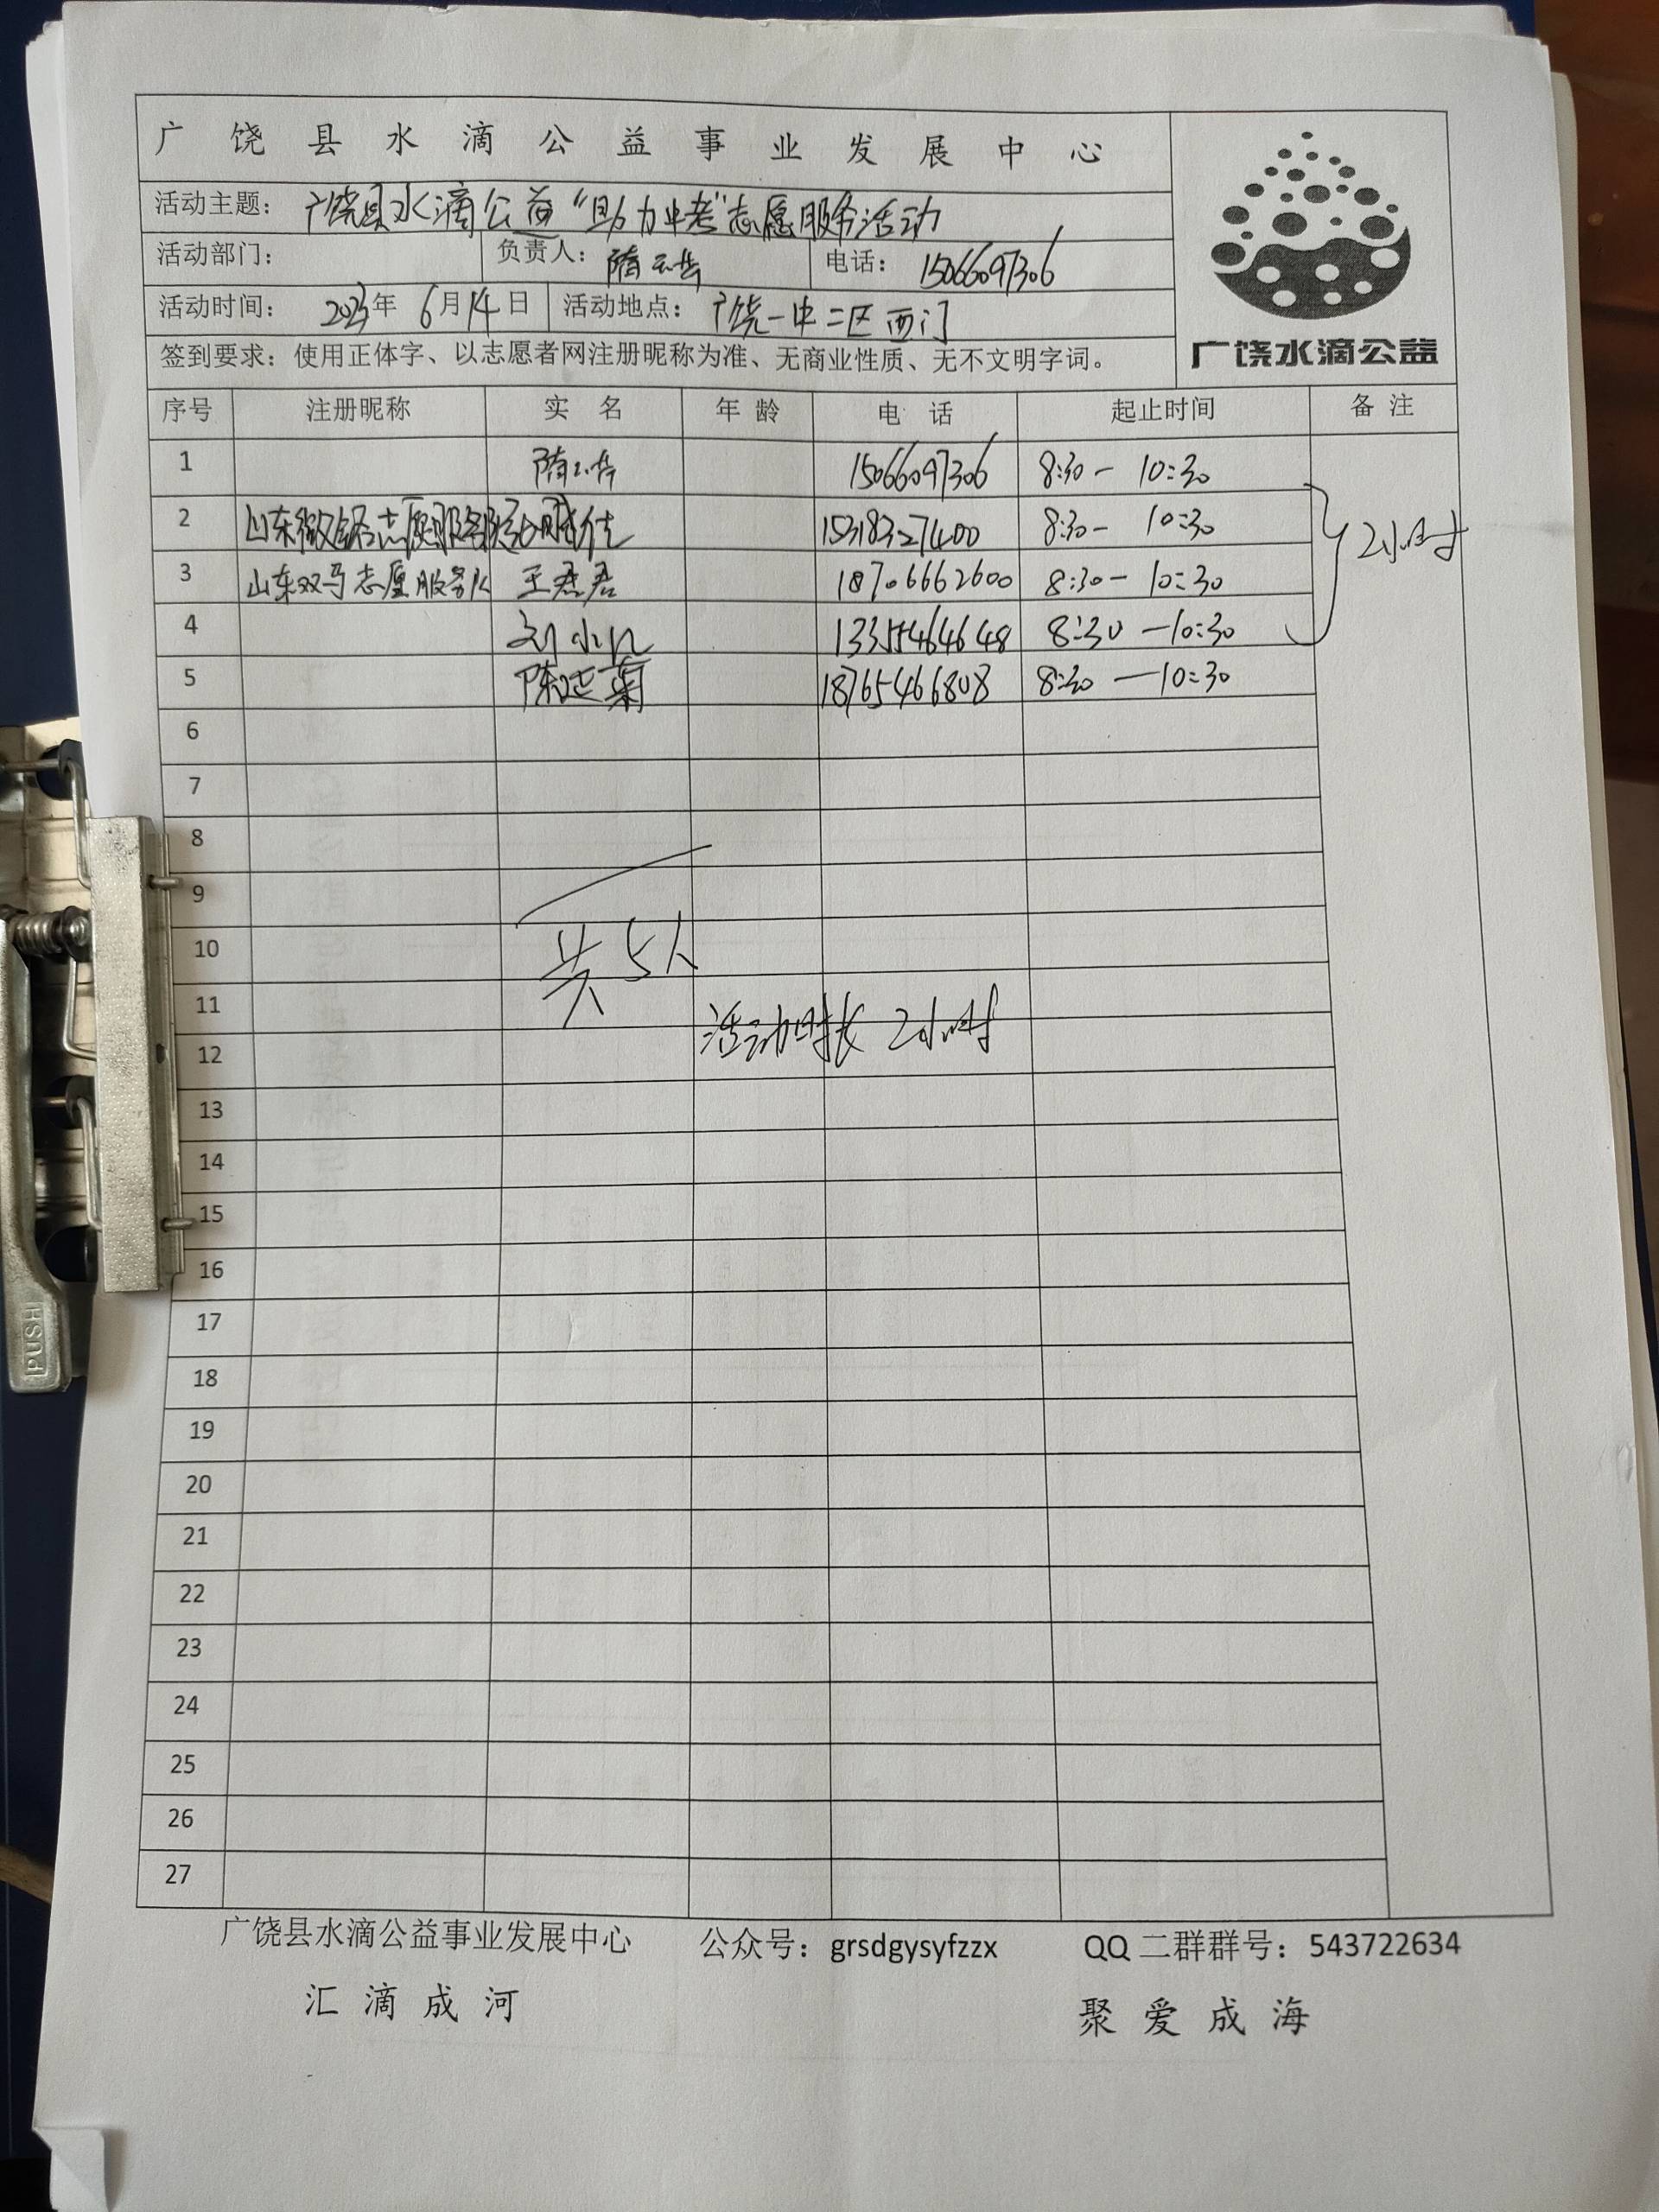 广饶县水滴公益事业发展中心
活动主题：广饶县水滴公益“助力中考”志愿服务活动
活动部门： 负责人：隋云岳 电话：15066097306
活动时间：2023年6月14日 活动地点：广饶一中二区西门
签到要求：使用正体字、以志愿者网注册昵称为准、无商业性质、无不文明字词。
广饶水滴公益
序号 注册昵称 实 名 年 龄 电 话 起止时间 备 注
1 隋云岳 15066097306 8:30 — 10:30
2 山东微 志愿服务队 15318327400 8:30 — 10:30
2小时
3 山东双马志愿服务队 王君君 18706662600 8:30 — 10:30
4 刘小 13355464648 8:30 — 10:30
5 陈延菊 18765466808 8:30 — 10:30
6
7
8
9
10 共5人
11
活动时长 2小时
12
13
14
15
16
17
18
19
20
21
22
23
24
25
26
27
广饶县水滴公益事业发展中心 公众号：grsdgysyfzzx QQ 二群群号：543722634
汇滴成河 聚爱成海
PUSH